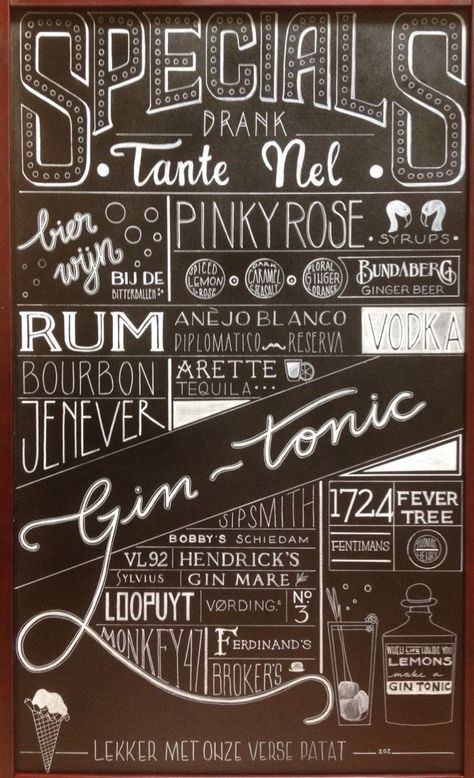 SPECIALS
DRANK
Tante Nel
bier wijn
BIJ DE
BITTERBALLEN
PINKYROSE
SYRUPS
SPICED LEMON & ROSE
DARK CARAMEL SEASALT
FLORAL GINGER ORANGE
BUNDABERG
GINGER BEER
RUM
ANÈJO BLANCO
DIPLOMATICO RESERVA
VODKA
BOURBON
JENEVER
ARETTE
TEQUILA...
Gin-tonic
SIPSMITH
BOBBY'S SCHIEDAM
VL92
SYLVIUS
HENDRICK'S
GIN MARE
LOOPUYT
VØRDING.S
No 3
MONKEY47
FERDINAND'S
BROKER'S
1724
FEVER TREE
FENTIMANS
THOMAS HENRY
WHEN LIFE HANDS YOU
LEMONS
make a
GIN TONIC
LEKKER MET ONZE VERSE PATAT